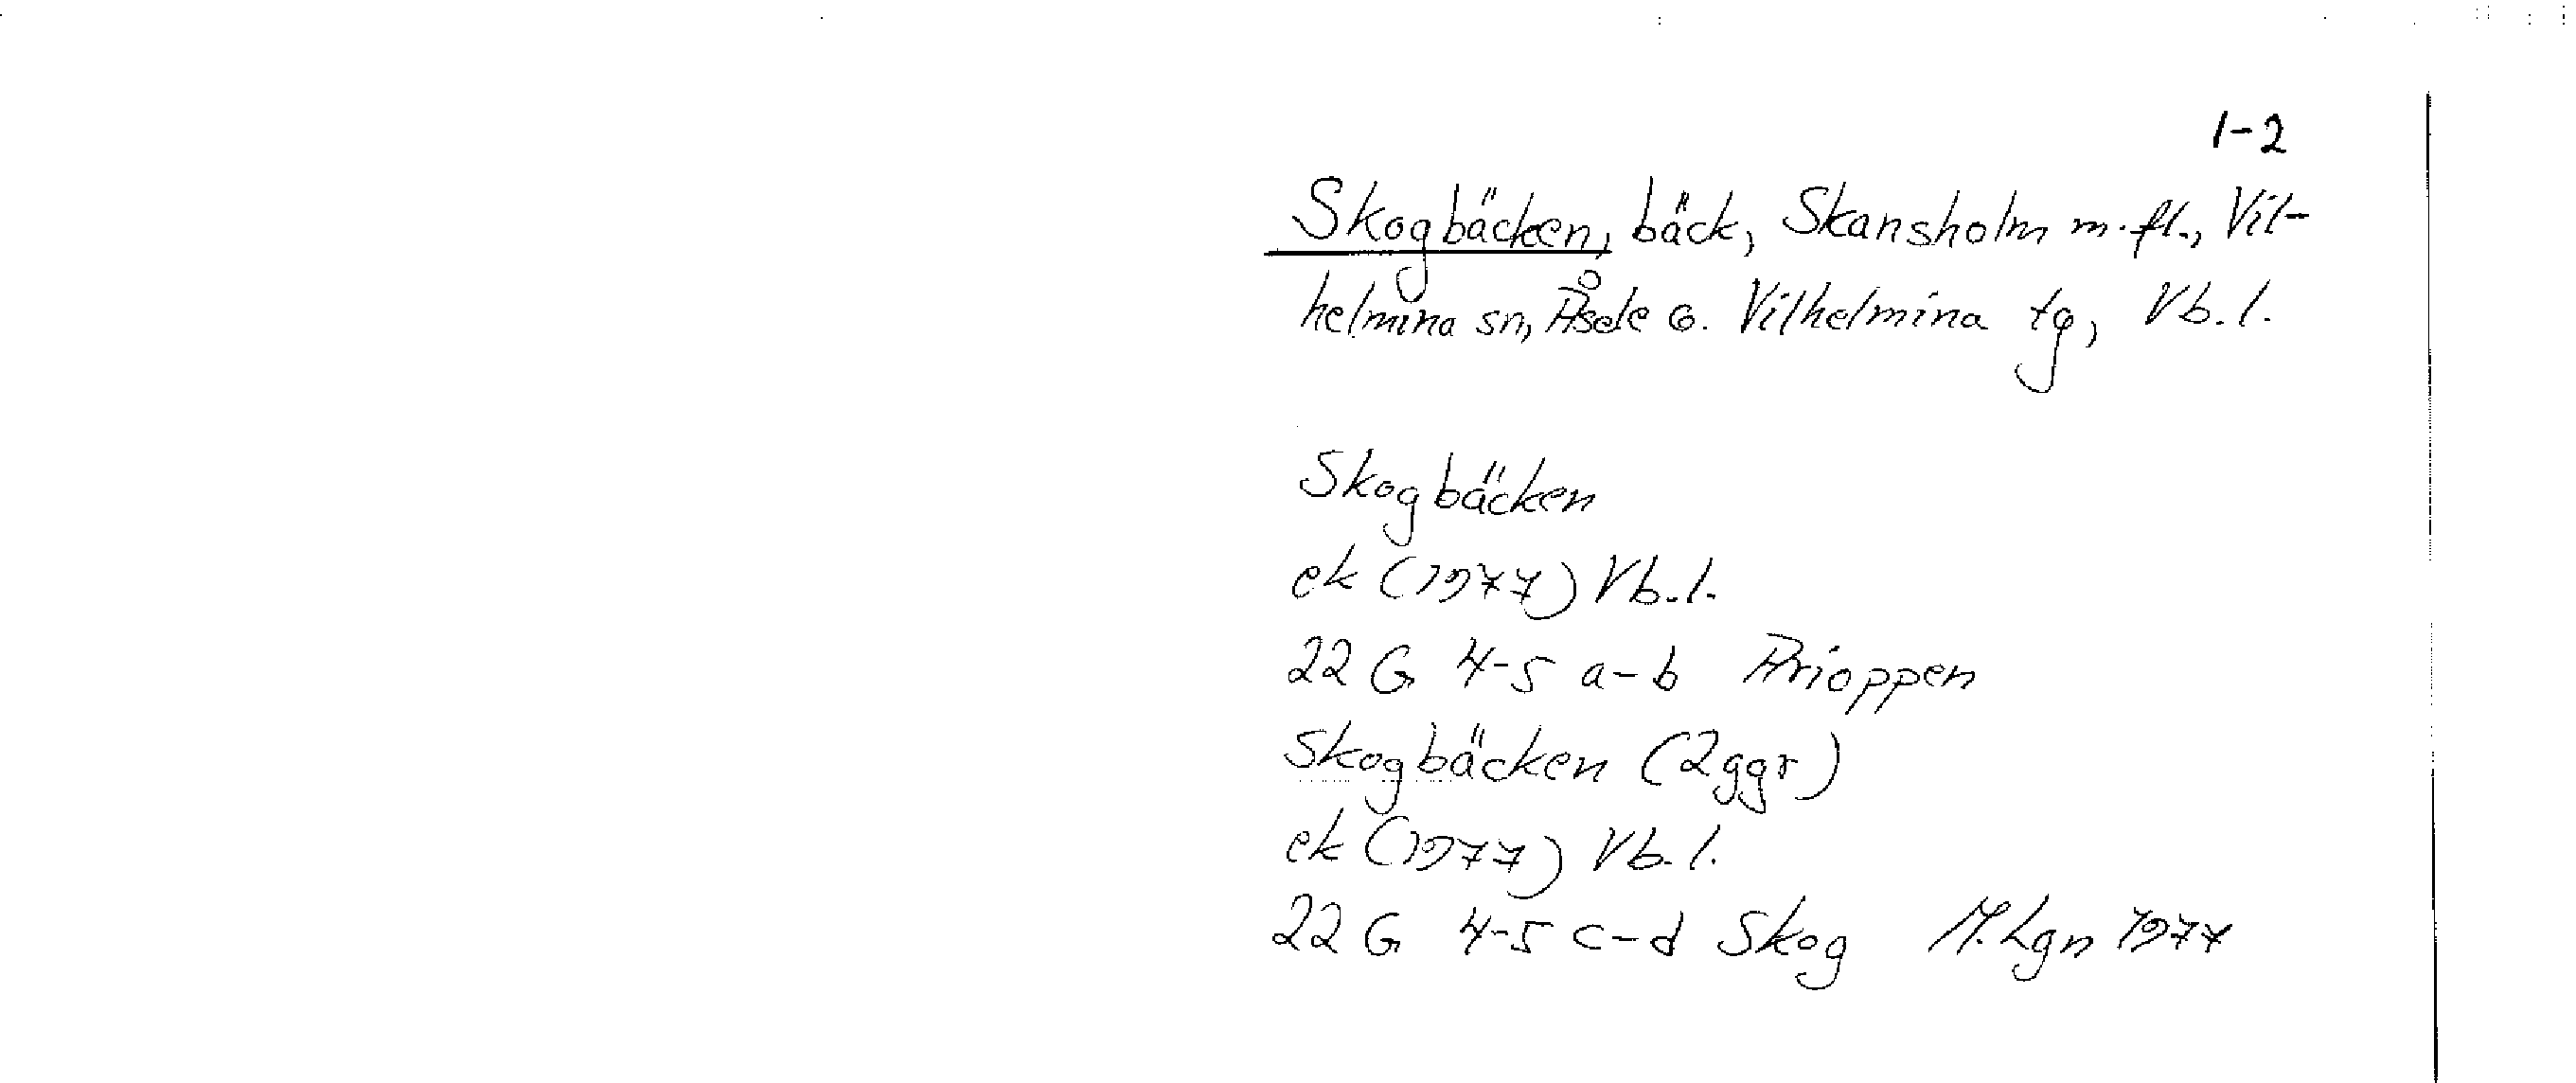 1-2
Skogbäcken, bäck, Skansholm m.fl., Vil-
helmina sn, Åsele o. Vilhelmina tg, Vb.l.
Skogbäcken
ek (1977) Vb.l.
22 G 4-5 a-b Arioppen
Skogbäcken (2ggr)
ek (1977) Vb.l.
22 G 4-5 c-d Skog M.Lgn 1977